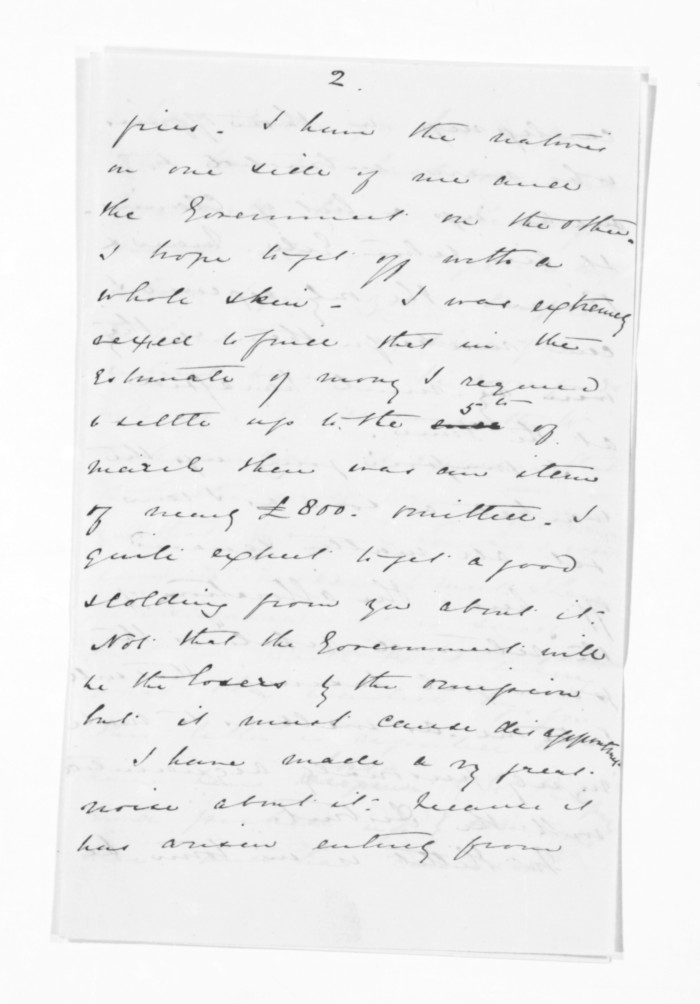 2.
fires. I have the natives
on one side of me and
the Government on the other.
I hope to get off with a
whole skin. I was extremely
vexed to find that in the
Estimate of money I required
to settle up to the 5th of
March there was an item
of nearly £800. omitted. I
quite expect to get a good
scolding from you about it.
Not that the Government will
be the losers by the omission
but it must cause disappointment.
I have made a vy great
noise about it. because it
has arisen entirely from